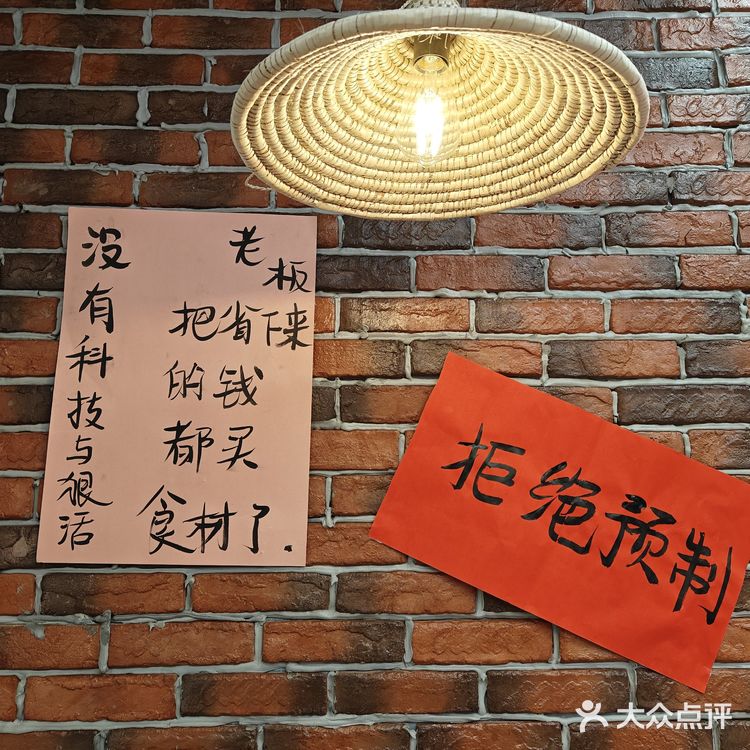 老板
把省下来
的钱
都买
食材了.
没有科技与狠活
拒绝预制
大众点评